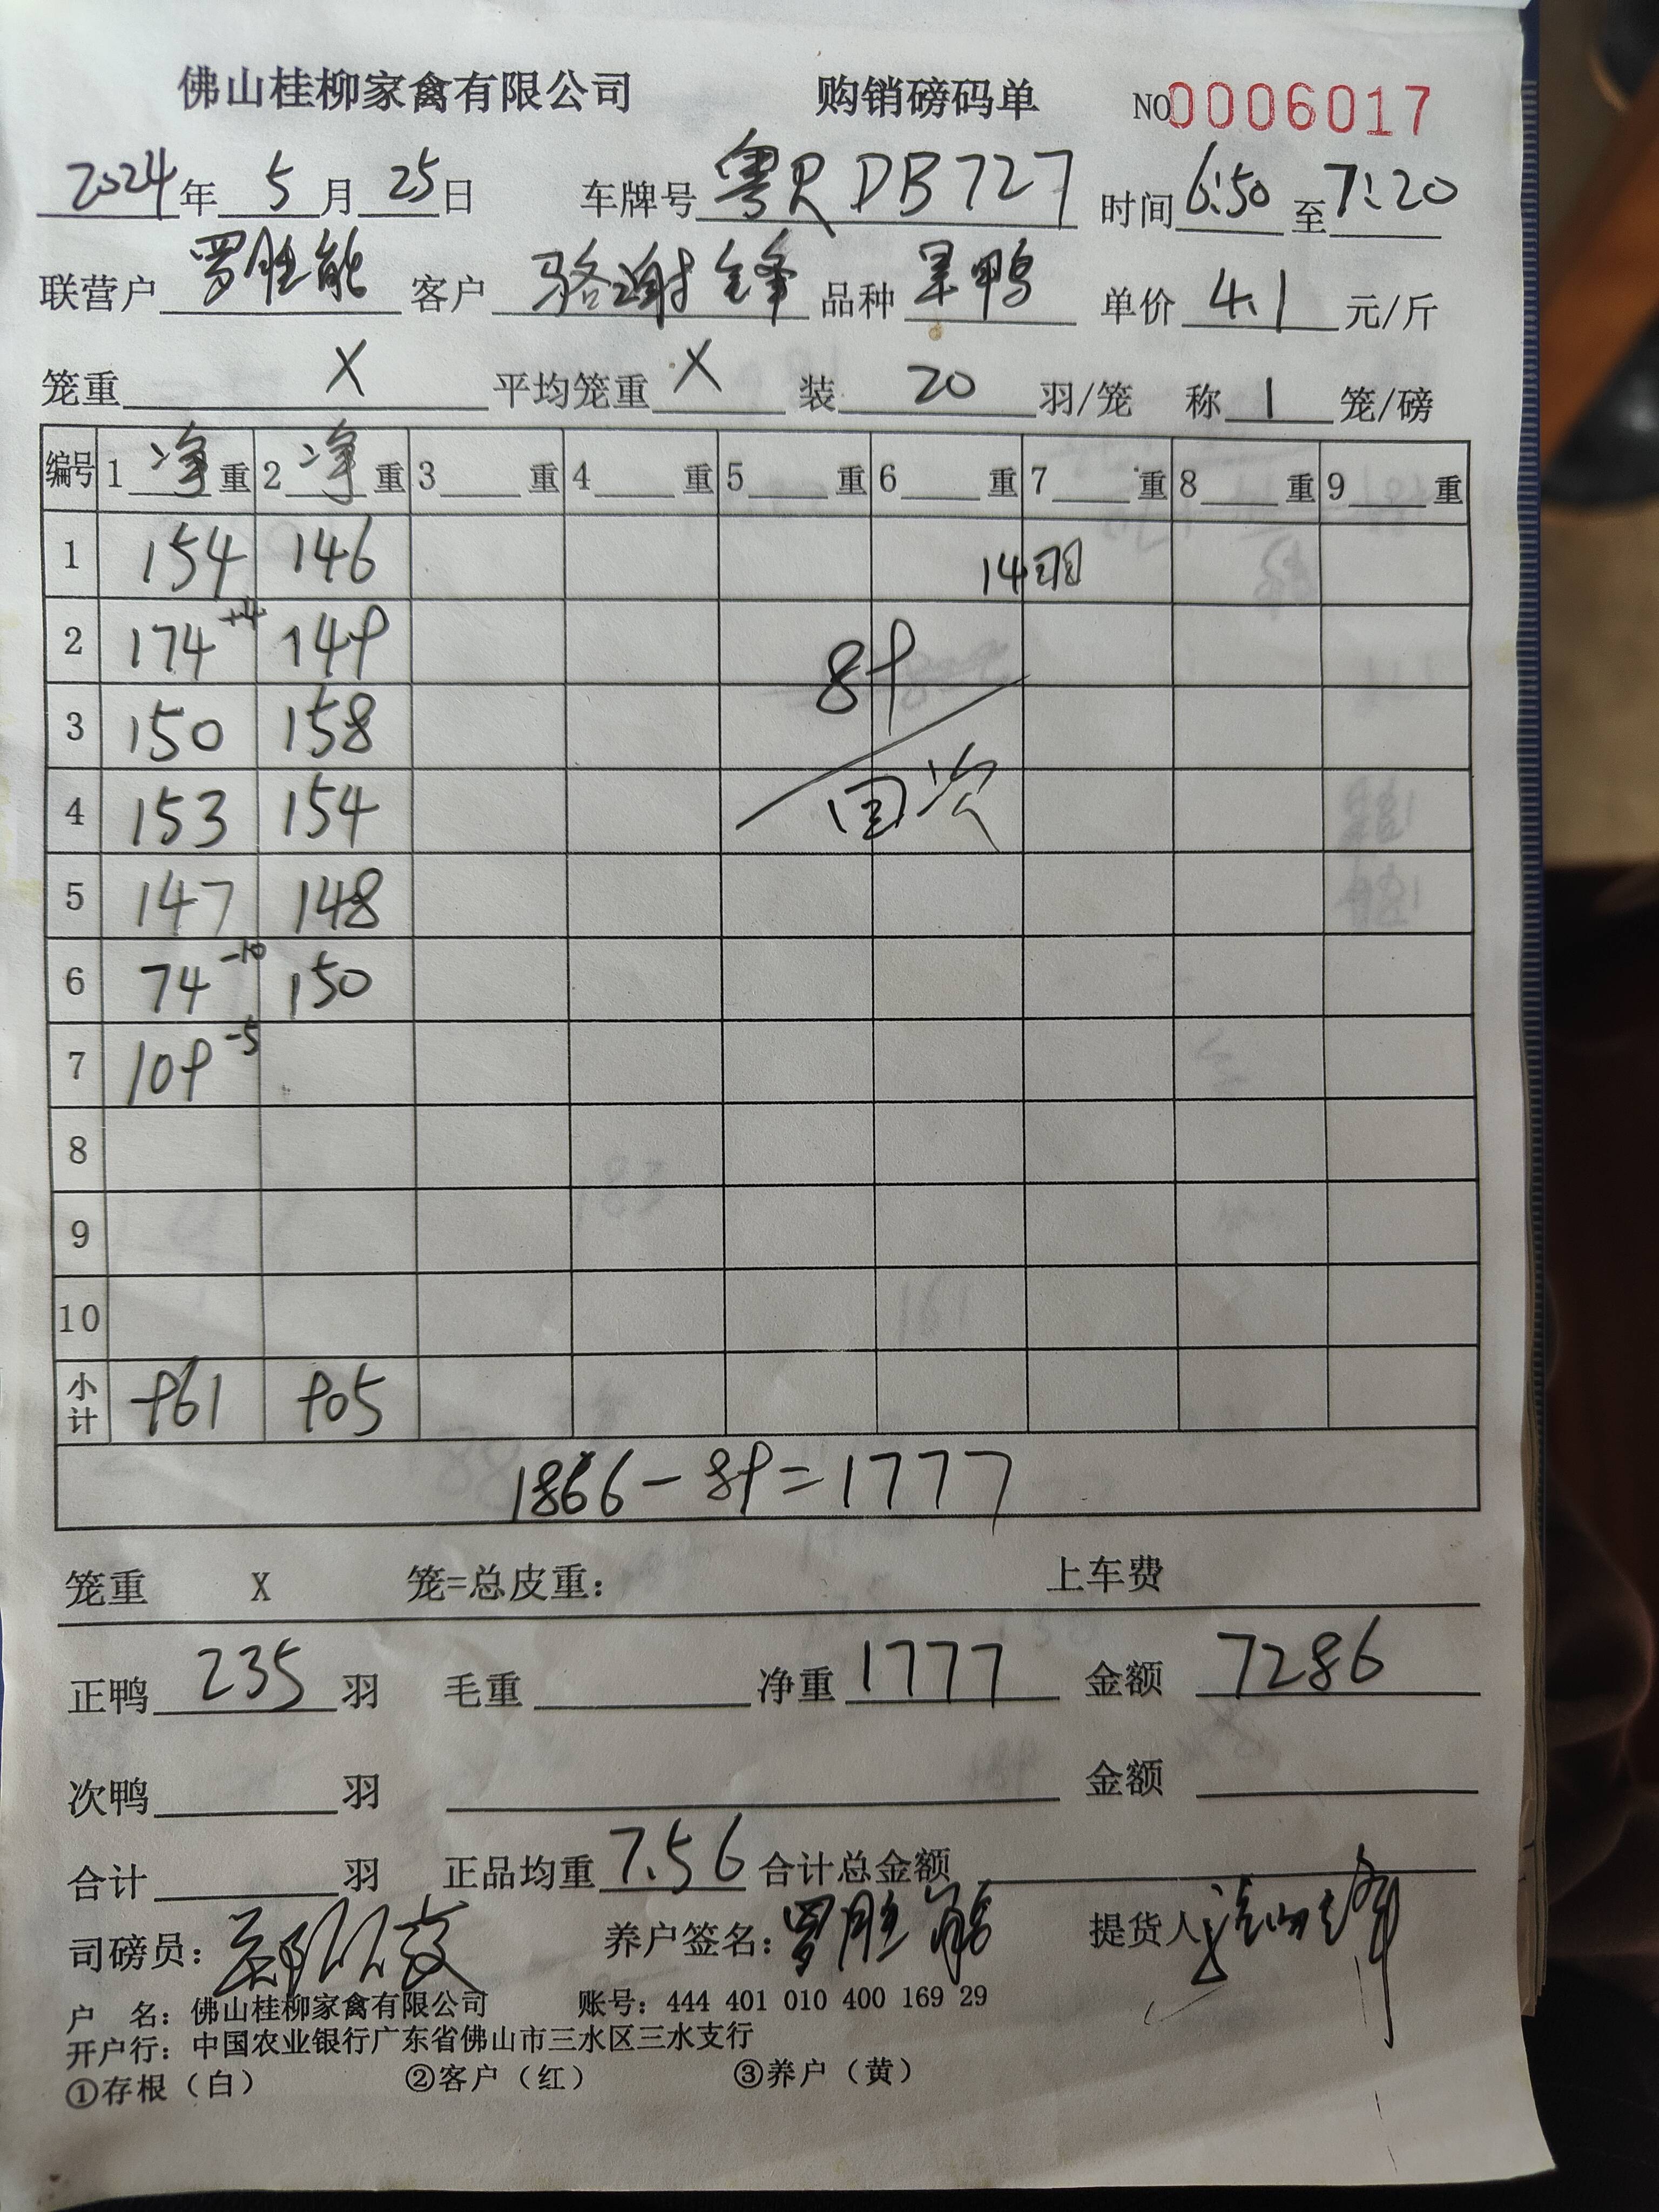 佛山桂柳家禽有限公司 购销磅码单 NO0006017
2024年 5月 25日 车牌号 粤R DB727 时间 6:50 至 7:20
联营户 罗胜能 客户 骆谢锋 品种 鸭 单价 4.1 元/斤
笼重 X 平均笼重 X 装 20 羽/笼 称 1 笼/磅
编号 1 净 重 2 净 重 3 重 4 重 5 重 6 重 7 重 8 重 9 重
1 154 146 14羽
2 174 +4 149 89
3 150 158
4 153 154 回次
5 147 148
6 74 -10 150
7 109 -5
8
9
10
小计 961 905
1866-89=1777
笼重 X 笼=总皮重: 上车费
正鸭 235 羽 毛重 净重 1777 金额 7286
次鸭 羽 金额
合计 羽 正品均重 7.56 合计总金额
司磅员: 养户签名: 罗胜能 提货人
户 名: 佛山桂柳家禽有限公司 账号: 444 401 010 400 169 29
开户行: 中国农业银行广东省佛山市三水区三水支行
①存根（白） ②客户（红） ③养户（黄）